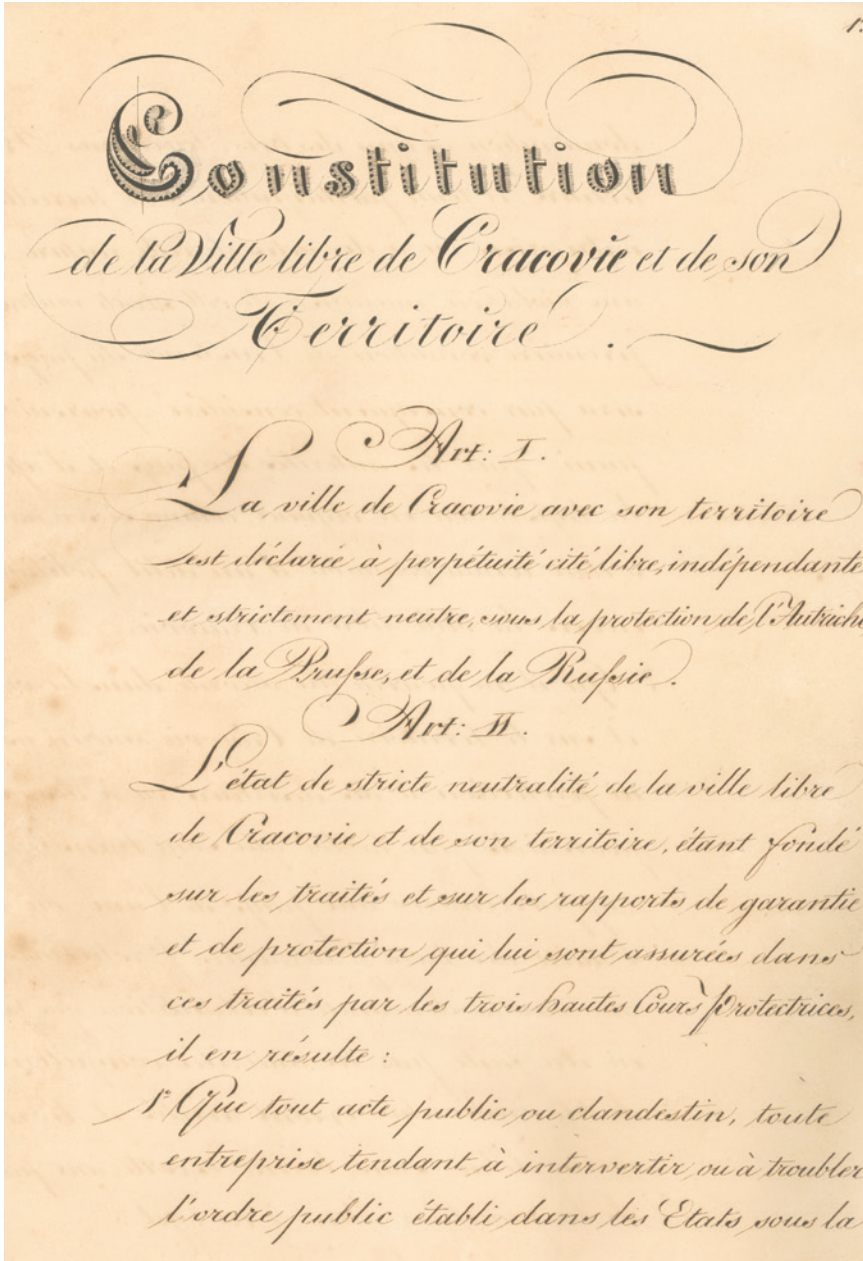 1.
Constitution
de la Ville libre de Cracovie et de son
Territoire.
Art: I.
La ville de Cracovie avec son territoire
est déclarée à perpétuité cité libre, indépendante
et strictement neutre, sous la protection de l'Autriche
de la Prusse, et de la Russie.
Art: II.
L'état de stricte neutralité de la ville libre
de Cracovie et de son territoire, étant fondé
sur les traités et sur les rapports de garantie
et de protection qui lui sont assurées dans
ces traités par les trois hautes Cours protectrices,
il en résulte:
1º Que tout acte public ou clandestin, toute
entreprise tendant à intervertir ou à troubler
l'ordre public établi dans les Etats sous la